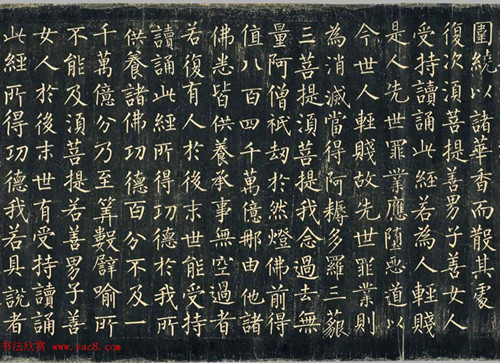 圍繞以諸華香而散其處
復次須菩提善男子善女人
受持讀誦此經若為人輕賤
是人先世罪業應墮惡道以
今世人輕賤故先世罪業則
為消滅當得阿耨多羅三藐
三菩提須菩提我念過去無
量阿僧祇劫於然燈佛前得
值八百四千萬億那由他諸
佛悉皆供養承事無空過者
若復有人於後末世能受持
讀誦此經所得功德於我所
供養諸佛功德百分不及一
千萬億分乃至筭數譬喻所
不能及須菩提若善男子善
女人於後末世有受持讀誦
此經所得功德我若具說者
书法欣赏 www.yac8.com